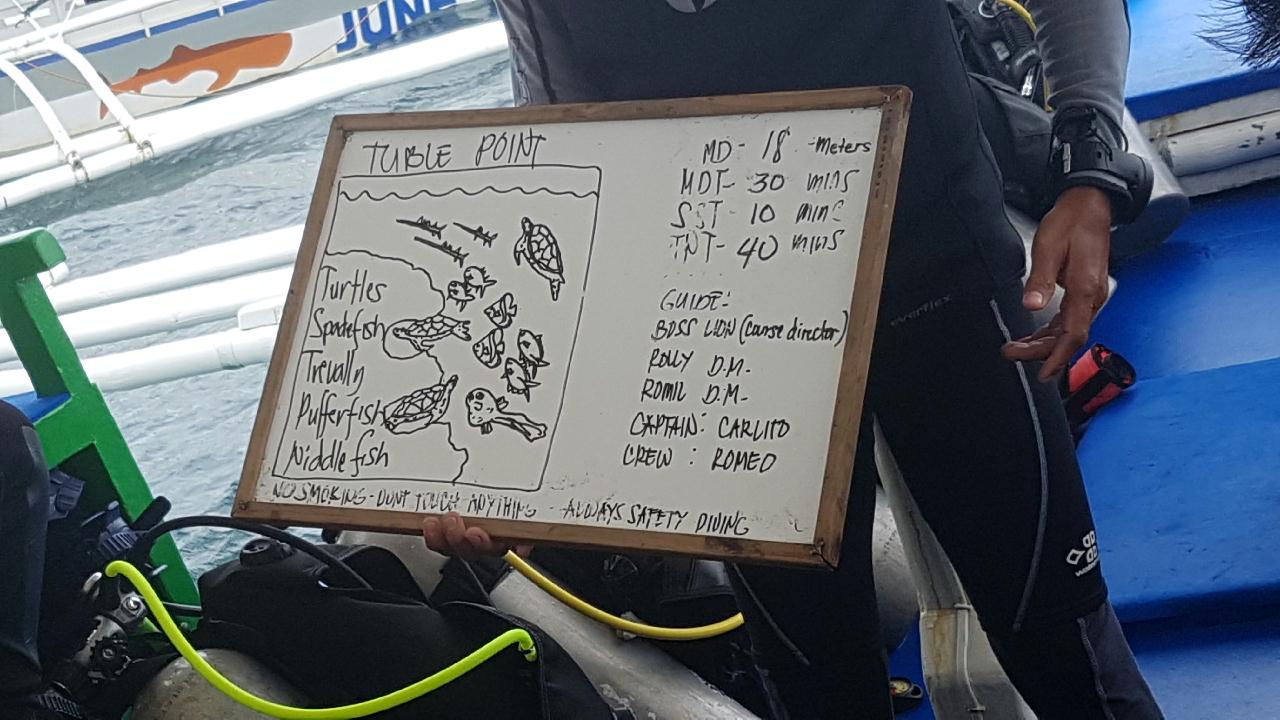 JUNE
TUBLE POINT
Turtles
Spadefish
Trevally
Pufferfish
Niddlefish
MD - 18 -Meters
MDT- 30 mins
SST - 10 mins
TNT- 40 mins
GUIDE:
BOSS LION (course director)
ROLLY D.M.
ROMIL D.M.
CAPTAIN: CARLITO
CREW : ROMEO
NO SMOKING - DONT TOUCH ANYTHING - ALWAYS SAFETY DIVING
everflex